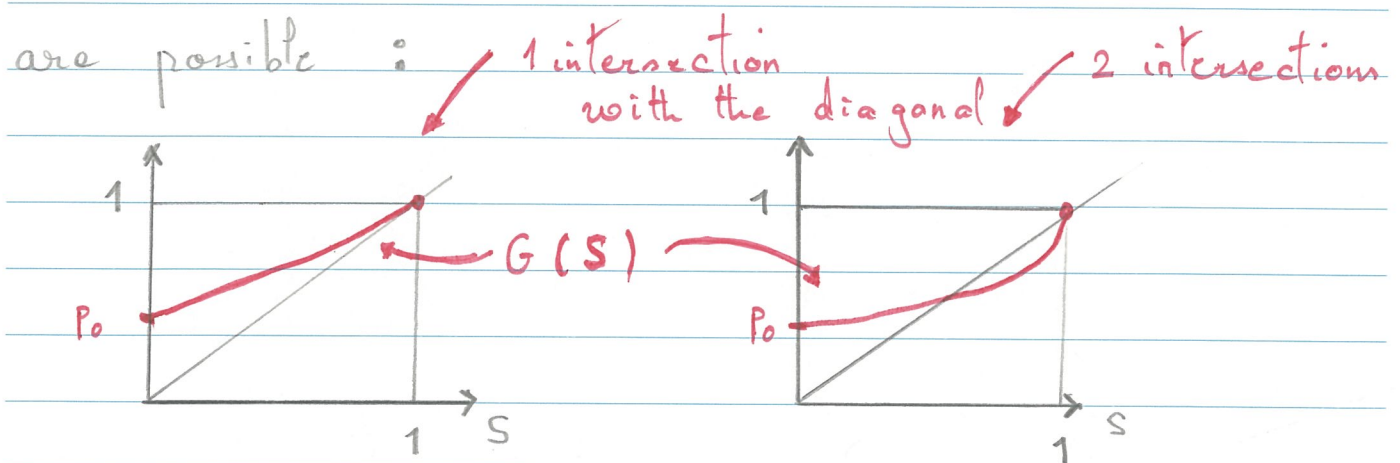 are possible : 1 intersection
with the diagonal
2 intersections
1
G(S)
P0
1
S
1
P0
1
S